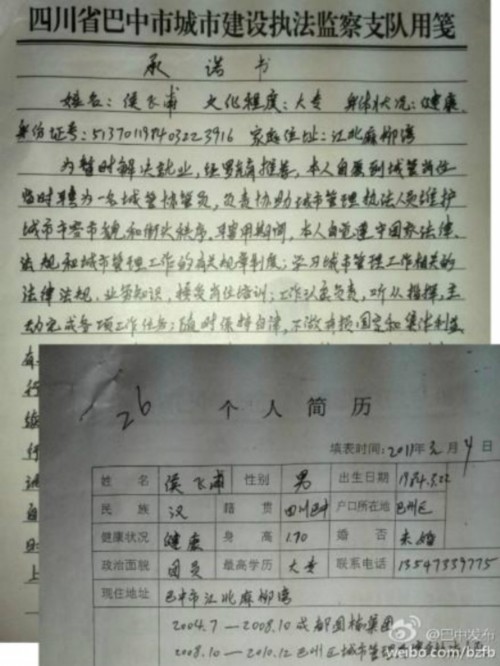 四川省巴中市城市建设执法监察支队用笺
承诺书
姓名：侯飞甫 文化程度：大专 身体状况：健康
身份证号： 家庭住址：江北麻柳湾
为暂时解决就业，经 推荐，本人自愿到城管岗位
临时聘为一名城管协管员，负责协助城市管理执法人员维护
城市市容市貌和街道秩序。聘用期间，本人自觉遵守国家法律、
法规和城市管理工作的有关规章制度；学习城市管理工作相关的
法律法规、业务知识，接受岗位培训；工作认真负责，听从指挥，主
动完成各项工作任务；随时保持自律，不做有损国家和集体利益
26 个人简历
填表时间：2011年3月4日
姓名 侯飞甫 性别 男 出生日期 1984.3.22
民族 汉 籍贯 四川巴中 户口所在地 巴州区
健康状况 健康 身高 1.70 婚否 未婚
政治面貌 团员 最高学历 大专 联系电话 13547339775
现住地址 巴中市江北麻柳湾
2004.7—2008.10 成都国榕集团
2008.10—2010.12 巴州区城市管理
@巴中发布
weibo.com/bzfb